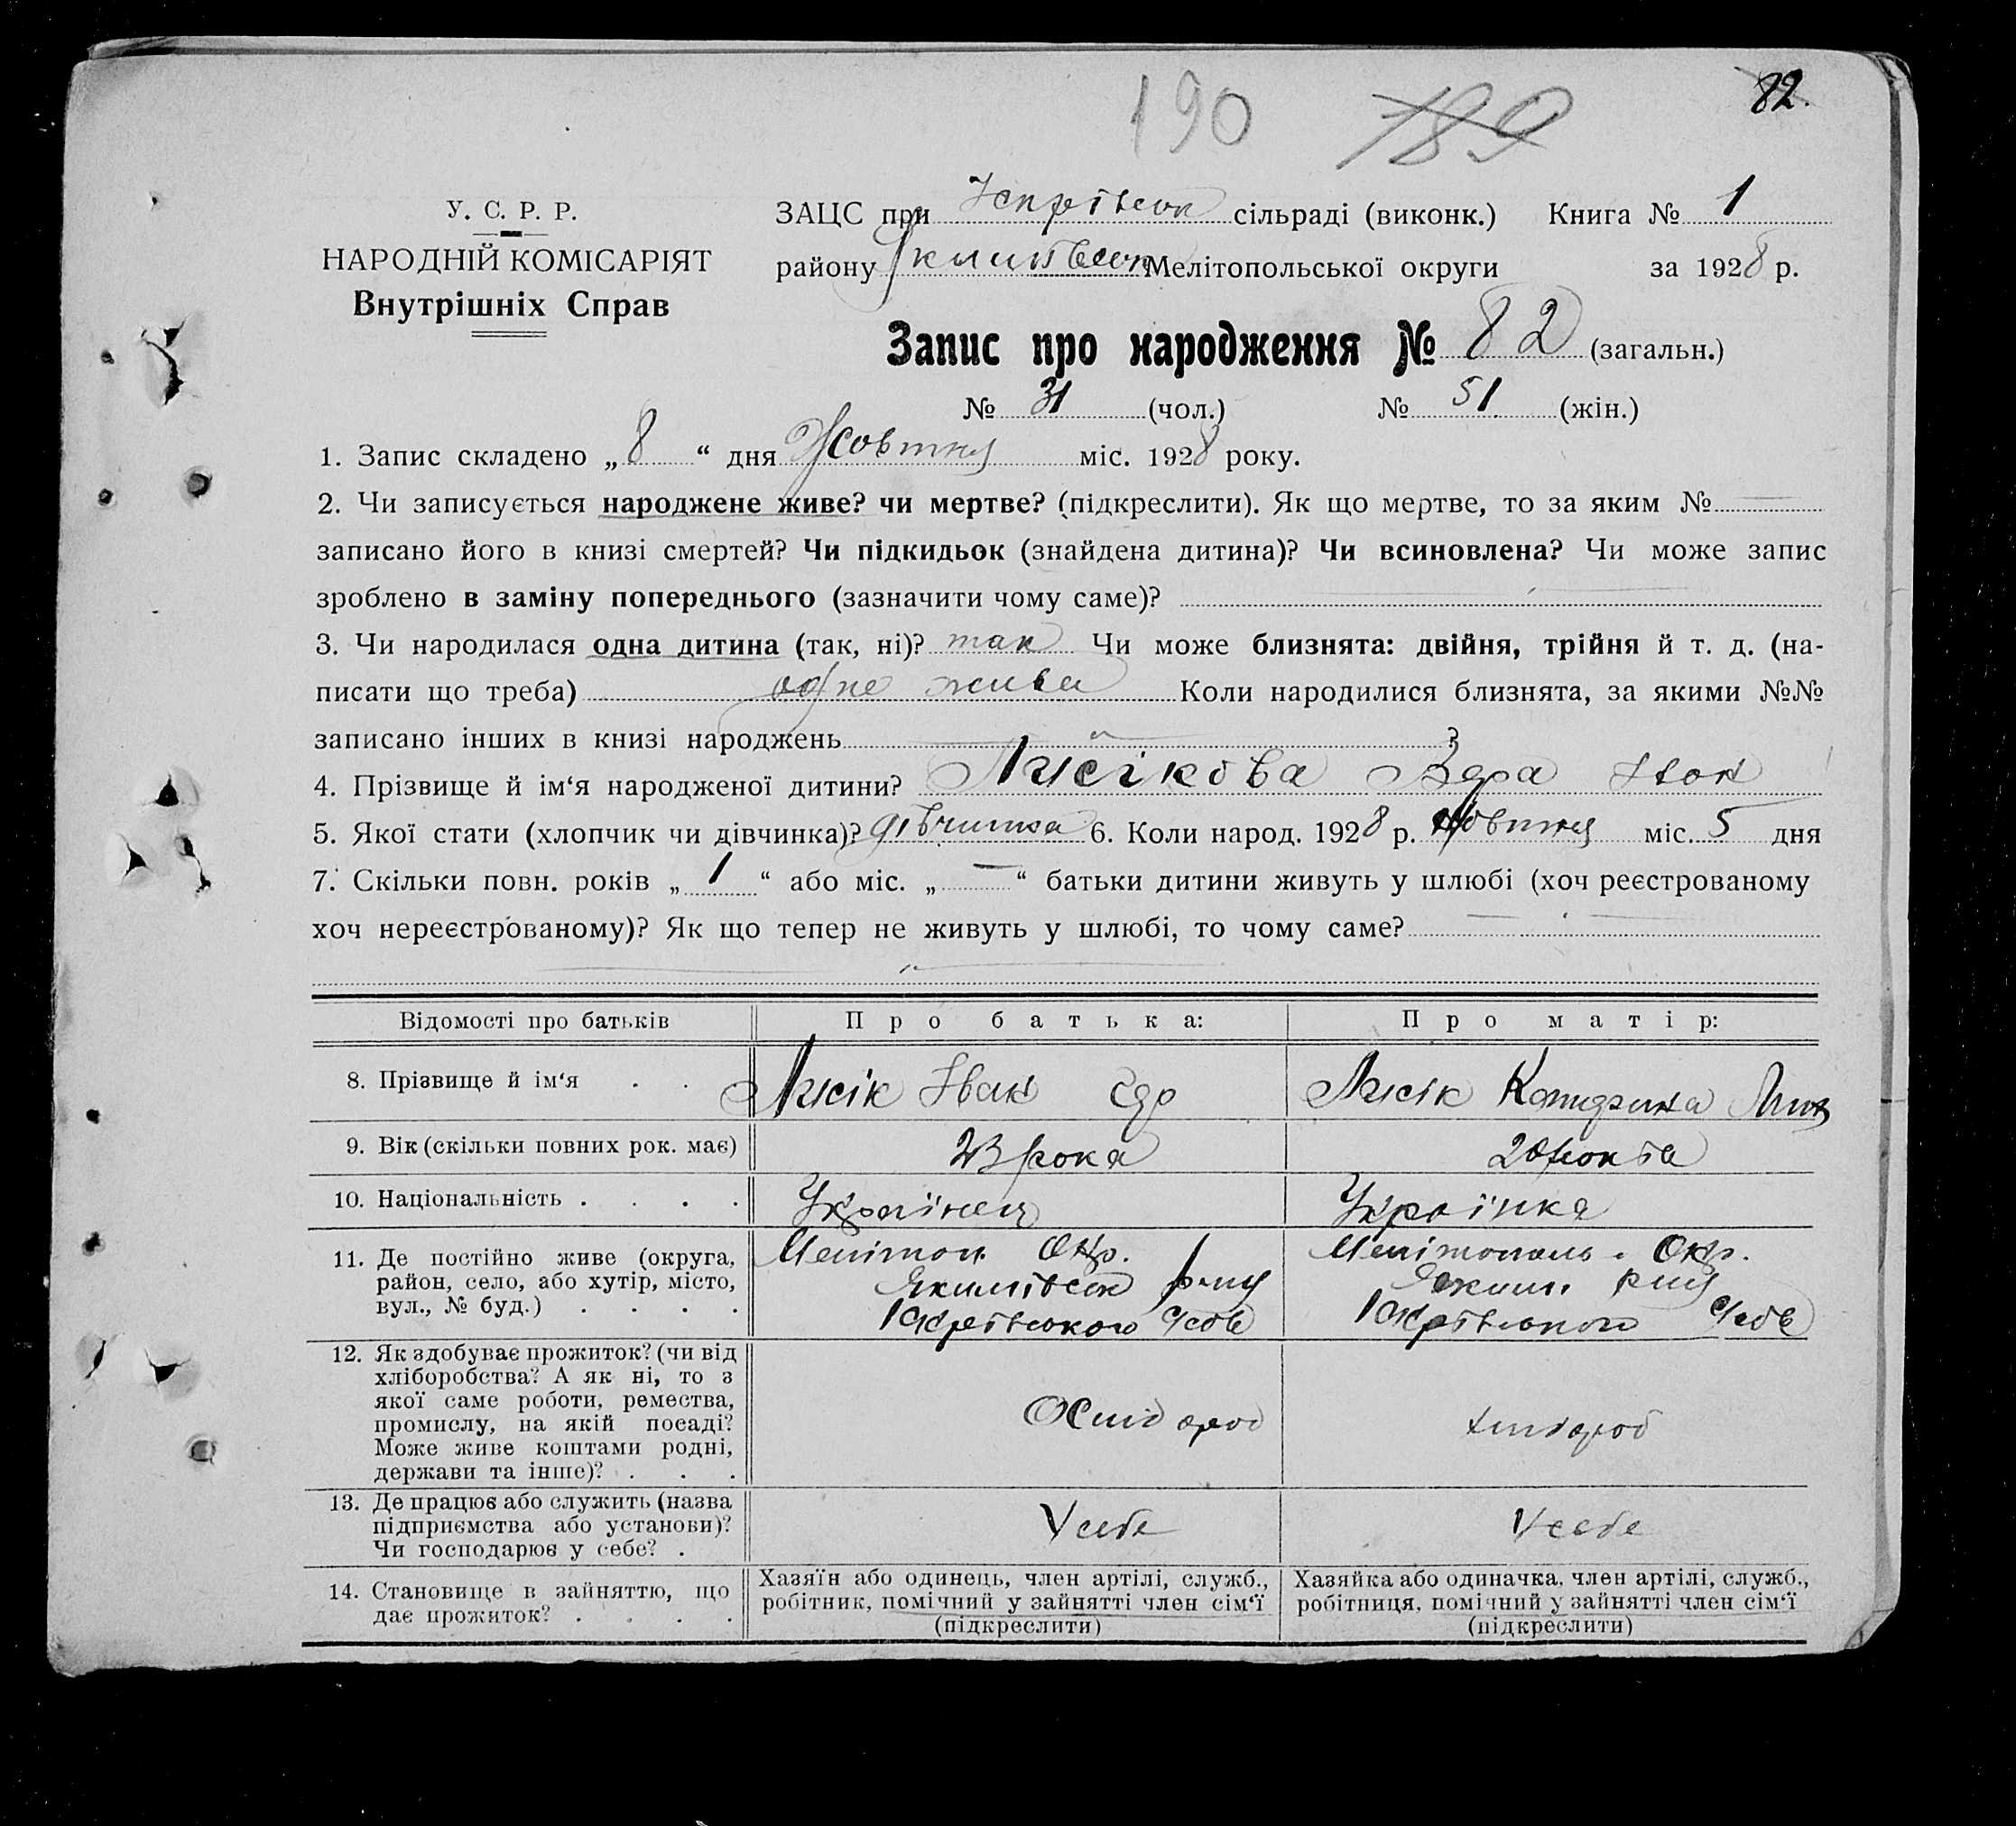 82.
190 189
У. С. Р. Р.
НАРОДНІЙ КОМІСАРІЯТ
Внутрішніх Справ
ЗАЦС при сільраді (виконк.) Книга № 1
району Мелітопольської округи за 1928 р.
Запис про народження № 82 (загальн.)
№ 31 (чол.) № 51 (жін.)
1. Запис складено „ 8 “ дня Жовтня міс. 1928 року.
2. Чи записується народжене живе? чи мертве? (підкреслити). Як що мертве, то за яким №
записано його в книзі смертей? Чи підкидьок (знайдена дитина)? Чи всиновлена? Чи може запис
зроблено в заміну попереднього (зазначити чому саме)?
3. Чи народилася одна дитина (так, ні)? так Чи може близнята: двійня, трійня й т. д. (на-
писати що треба) одне Коли народилися близнята, за якими №№
записано інших в книзі народжень ?
4. Прізвище й ім‘я народженої дитини? Лисікова
5. Якої стати (хлопчик чи дівчинка)? дівчинка 6. Коли народ. 1928 р. Жовтня міс. 5 дня
7. Скільки повн. років „ 1 “ або міс. „ — “ батьки дитини живуть у шлюбі (хоч реєстрованому
хоч нереєстрованому)? Як що тепер не живуть у шлюбі, то чому саме?
Відомості про батьків Про батька: Про матір:
8. Прізвище й ім‘я . . Лисік Іван Лисік
9. Вік (скільки повних рок. має) 23 рока 20
10. Національність . . . . Українец Українка
11. Де постійно живе (округа,
район, село, або хутір, місто,
вул., № буд.) . . . .
Мелітоп. Окр.
Якимівськ р-ну
Мелітополь. Окр.
Яким. р-ну
12. Як здобуває прожиток? (чи від
хліборобства? А як ні, то з
якої саме роботи, ремества,
промислу, на якій посаді?
Може живе коштами родні,
держави та інше)? . . .
Хлібороб хлібороб
13. Де працює або служить (назва
підприємства або установи)?
Чи господарює у себе? .
У себе У себе
14. Становище в зайняттю, що
дає прожиток? . . . .
Хазяїн або одинець, член артілі, служб.,
робітник, помічний у зайнятті член сім‘ї
(підкреслити)
Хазяйка або одиначка, член артілі, служб.,
робітниця, помічний у зайнятті член сім‘ї
(підкреслити)